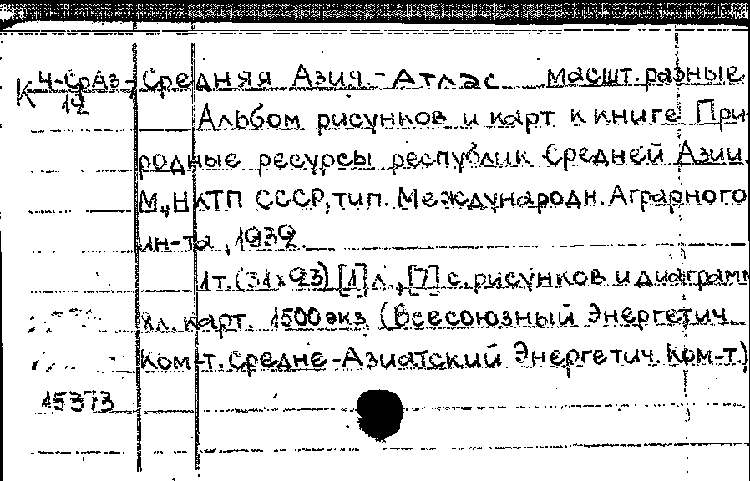 К Ч-СрАз Средняя Азия.-Атлас масшт. разные
12
Альбом рисунков и карт к книге При-
родные ресурсы республик Средней Азии.
М., НКТП СССР, тип. Международн. Аграрного
ин-та, 1932.
1т. (31х23) [1] л., [7] с. рисунков и диаграмм
карт. 1500 экз (Всесоюзный Энергетич.
Ком-т. Средне-Азиатский Энергетич. Ком-т)
15373